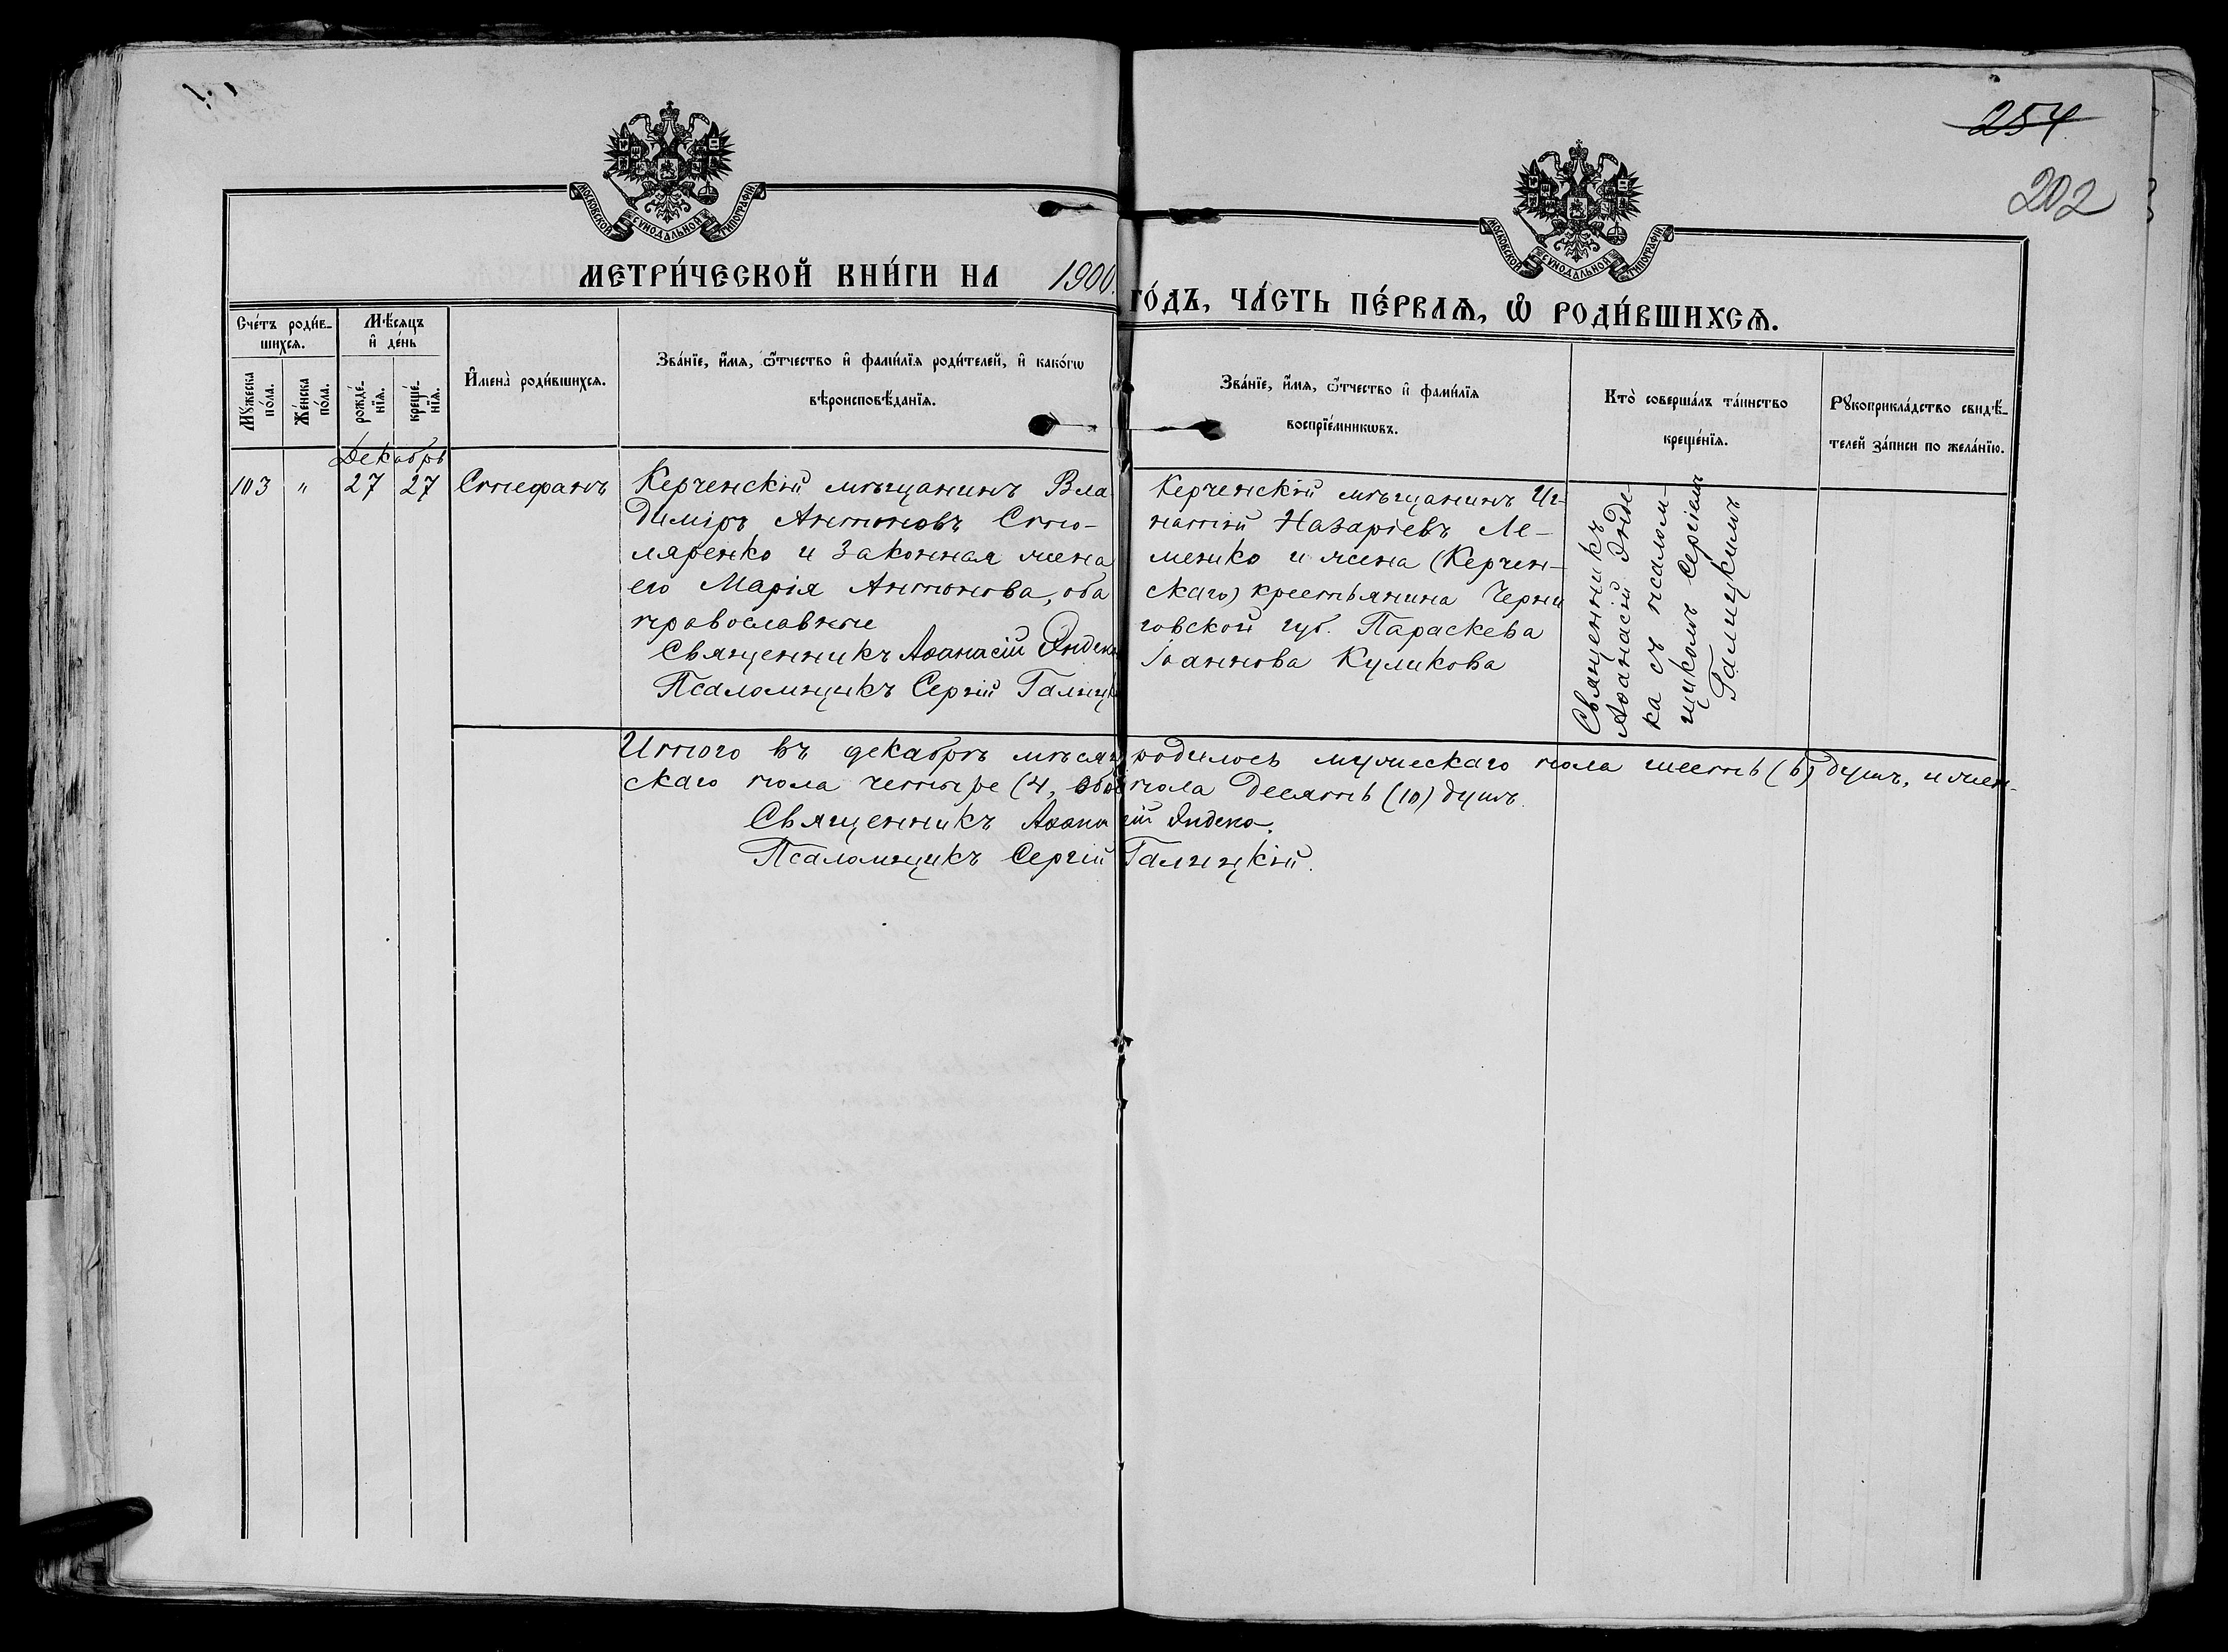 254
202
МОСКОВСКОЙ СУНОДАЛЬНОЙ ТИПОГРАФІИ
МОСКОВСКОЙ СУНОДАЛЬНОЙ ТИПОГРАФІИ
МЕТРИ́ЧЕСКОЙ КНИ́ГИ НА 1900. ГО́ДЪ, ЧА́СТЬ ПЕ́РВАѦ, Ѡ҆ РОДИ́ВШИХСѦ.
Сче́тъ роди́в-
шихсѧ.
Мꙋ́жеска
по́ла.
Же́нска
по́ла.
Мѣ́сѧцъ
и҆ де́нь
рожде́-
нїѧ.
креще́-
нїѧ.
И҆мена̀ роди́вшихсѧ.
Зва́нїе, и҆́мѧ, ѻ҆́тчество и҆ фами́лїѧ роди́телей, и҆ како́гѡ
вѣроисповѣ́данїѧ.
Зва́нїе, и҆́мѧ, ѻ҆́тчество и҆ фами́лїѧ
воспрїе́мникѡвъ.
Кто̀ соверша́лъ та́инство
креще́нїѧ.
Рꙋкоприкла́дство свидѣ́-
телей за́писи по жела́нїю.
Декабрь
103 " 27 27 Стефанъ
Керченскій мѣщанинъ Вла
диміръ Антоновъ Сто-
ляренко и законная жена
его Марія Антонова, оба
православные
Священникъ Аѳанасій Яндека
Псаломщикъ Сергій Галицк
Керченскій мѣщанинъ Иг-
натій Назаріевъ Ле-
менко и жена (Керчен-
скаго) крестьянина Черни
говской губ. Параскева
Іоаннова Куликова
Священникъ
Аѳанасій Янде-
ка съ псалом-
щикомъ Сергіемъ
Галицкимъ
Итого въ декабрѣ мѣсяц родилось мужескаго пола шесть (6) душъ, и жен-
скаго пола четыре (4, обое пола десять (10) душъ.
Священникъ Аѳанасій Яндека.
Псаломщикъ Сергій Галицкій.